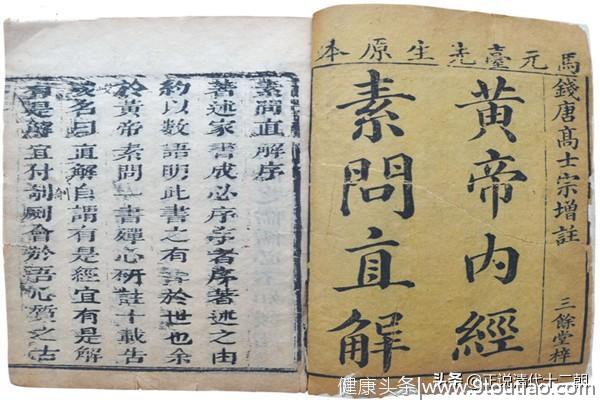 馬元臺先生原本
錢唐髙士宗增註
三餘堂梓
黃帝內經
素問直解
素問直解序
著述家書成必序序者序著述之由
約以數語明此書之有於世也余
於黃帝素問一書殫心研註十載告
名曰直解自謂有是經宜有是解
有是宜付剞劂會於心之古
头条 @正说清代十二朝
健康头条 www.9toutiao.com